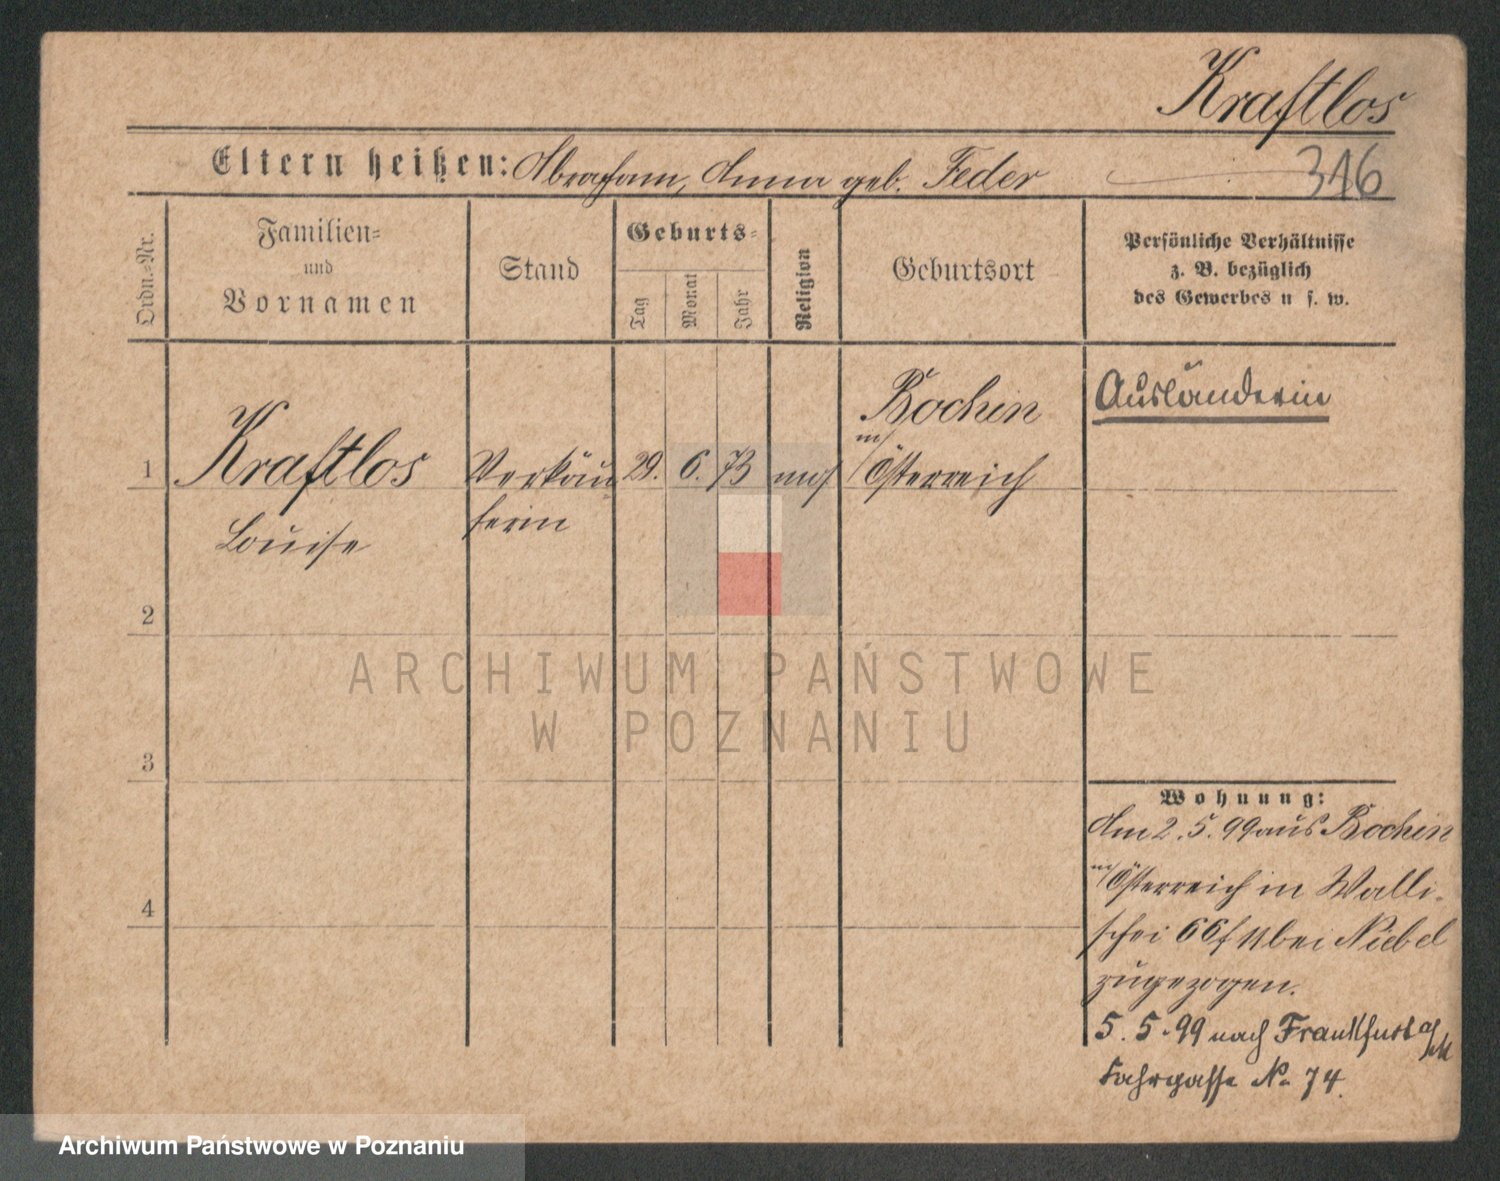 Kraftlos
Eltern heißen: Abraham, Anna geb. Feder
316
Ordn.-Nr.
Familien-
und
Vornamen
Stand
Geburts-
Tag
Monat
Jahr
Religion
Geburtsort
Persönliche Verhältnisse
z. B. bezüglich
des Gewerbes u s. w.
1
Kraftlos
Louise
Verkäu
ferin
29.
6.
73
mos
Bochin
in/
Österreich
Ausländerin
2
3
4
ARCHIWUM PAŃSTWOWE
W POZNANIU
Wohnung:
Am 2. 5. 99 aus Bochin
in/Österreich in Walli-
schei 66 bei Niebel
zugezogen.
5. 5. 99 nach Frankfurt a/M
Fahrgasse No 74.
Archiwum Państwowe w Poznaniu